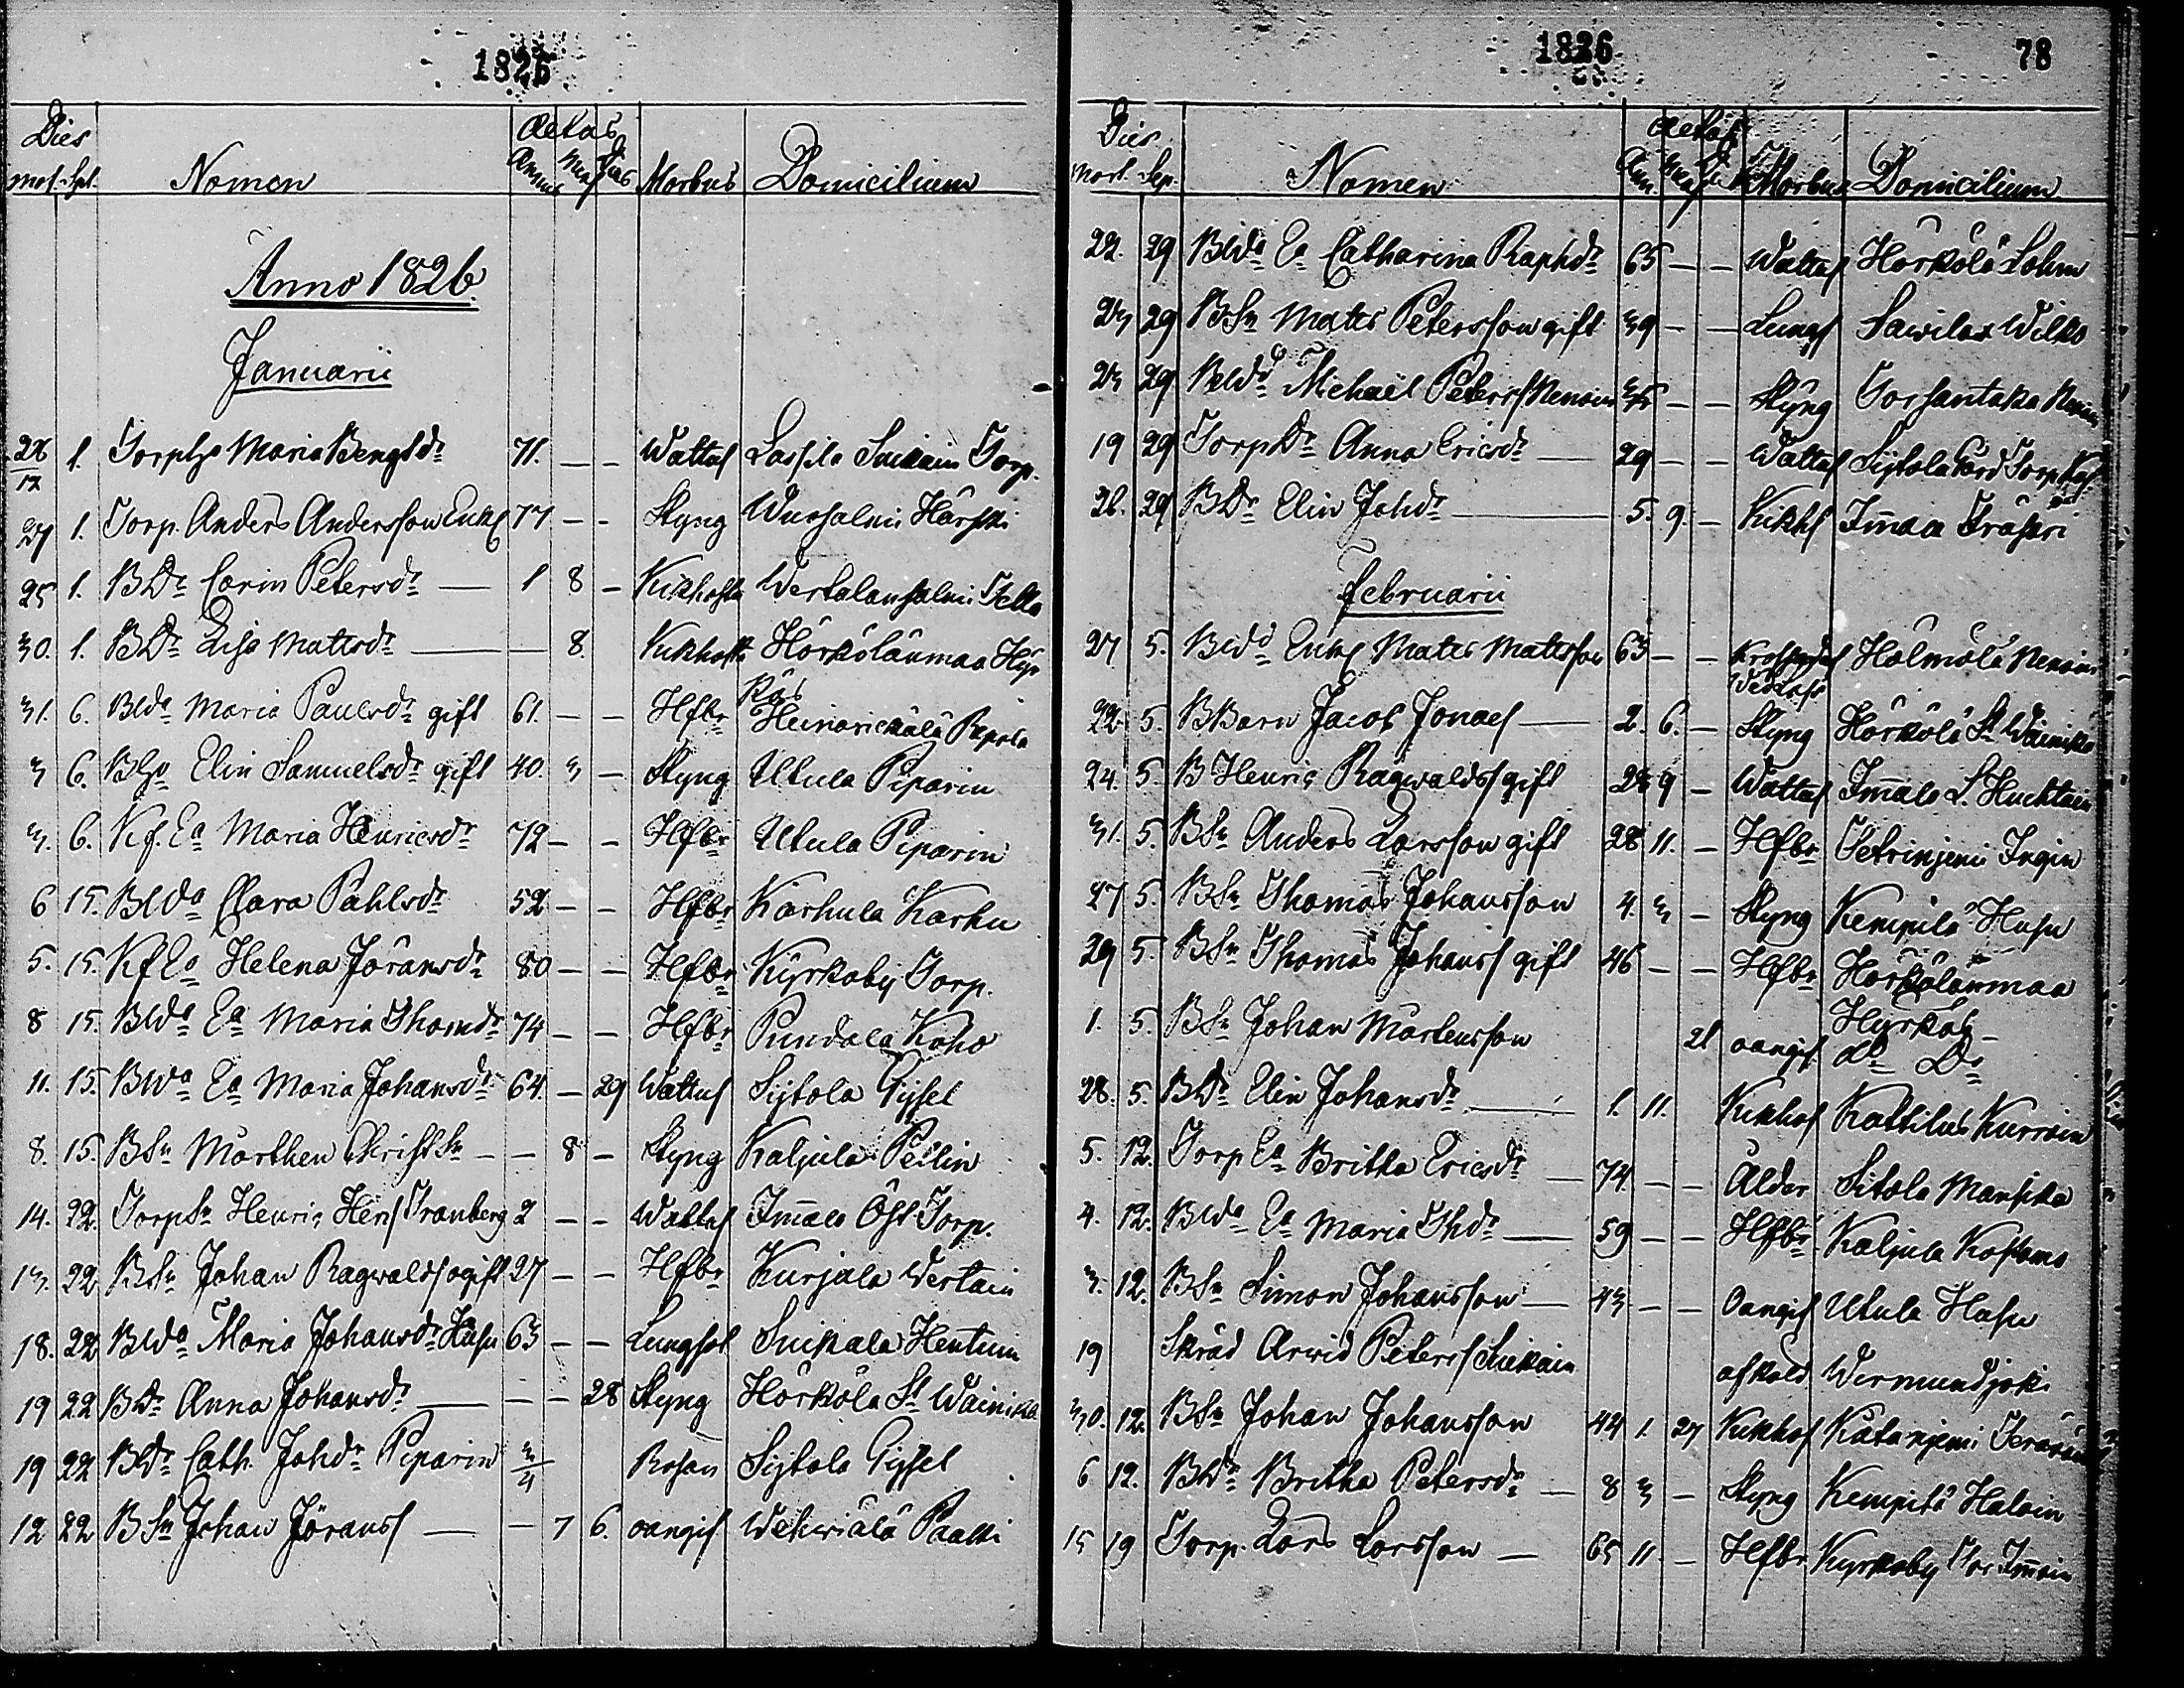 1826
Dies Aetas
Mort. Spl. Nomen Annus Mens Dies Morbus Domicilium
Anno 1826.
Januarii
28/12 1. Torphu Maria Bengtsdr 71. — — Wattus Lassila Suikain Torp.
27 1. Torp. Anders Andersson Enkl 77 — — Styng Wuosalmi Härski
25 1. BDr Carin Petersdr — 1 8 — Kikhosta Wertalansalmi Tella
30. 1. BDr Lisa Mattsdr — — 8. Kikhosta Hörkölänmaa Hyr
kös
31. 6. Blda Maria Paulsdr gift 61. — — Hfbr Heinorickälä Repola
3 6. BHu Elin Samuelsdr gift 40. 3 — Styng Utula Piparin
3. 6. Kf. Ea Maria Henricsdr 72 — — Hfbr Utula Piparin
6 15. Blda Clara Påhlsdr 52 — — Hfbr Karhula Karhu
5. 15. Kf Ea Helena Jöransdr 80 — — Hfbr Kyrkoby Torp.
8 15. Blda Ea Maria Thomdr 74 — — Hfbr Pundala Koho
11. 15. Blda Ea Maria Johansdr 64. — 29 Wattus Sijtola Gijsel
8. 15. BSn Mårthen ChristSn — — 8 — Styng Kaljula Peilin
14. 22. TorpSn Henric Henss Tranberg 2 — — Wattus Immala Öst Torp.
13. 22 BSn Johan Ragwalds ogift 27 — — Hfbr Kurjala Wertain
18. 22 Blda Maria Johansdr Husu 63 — — Lungsot Suikala Hentuin
19 22 BDr Anna Johansdr — — — 28 Styng Hörkölä St Wainikka
19 22 BDr Cath. Johdr Piparin 3/4 Rosen Sijtola Gijsel
12 22 BSn Johan Jöranss — — 7 6. oangif Wehwiälä Paatti
1826
78
Dies Aetas
Mort. Sep. Nomen Ann. Mens Di Morbus Domicilium
22. 29 Blda Ea Catharina Raphdr 65 — — Wattus Hörkölä Lohm
23 29 BSn Mats Petersson gift 39 — — Lungs Sawilax Wilko
23 29 Bldd Michaël Peterss Nenoin — — Styng Torsantaka Nenoin
19 29 TorpDr Anna Ericsdr — 29 — — Wattus Sijtola Gård Torp
26. 29 BDr Elin Johdr — 5. 9. — Kikhs Immaa Träskri
Februarii
27 5. Bldd Enkl Mats Mattsson 63 — — Holmölä Nenoin
22. 5. BBarn Jacob Jonaes — 2. 6. — Styng Hörkölä St Wainikka
24. 5. B Henric Ragwaldss gift 28 9 — Wattus Immala L. Huchtain
31. 5. BSn Anders Larsson gift 28 11. — Hfbr Tetrinjemi Ingin
27 5. BSn Thomas Johansson 4. 3 — Styng Kempilä Husu
29 5. BSn Thomas Johanss gift 46 — — Hfbr Hörkölänmaa
Hyrkös
1. 5. BSn Johan Mårtensson 21 oangif do Do
28. 5. BDr Elin Johansdr — 1. 11. Kikhos Kattilus Kurroin
5. 12. Torp Ea Britha Ericsdr — 74. — — Ålder Sitola Mansika
4. 12. Blda Ea Maria Thdr — 59 — — Hfbr Kaljula Kostamo
3. 12. BSn Simon Johansson — 43 — — Oangif Utula Husu
19 Skräd Arwid Peterss Suikain afkald Wirmundjoki
30. 12. BSn Johan Johansson 44 1. 27 Kikhos Kätänjemi Teräväin
6 12. BDr Britha Petersdr — 8 3 — Styng Kempilä Haloin
15 19 Torp. Lars Larsson — 65 11. — Hfbr Kyrkoby Immoin